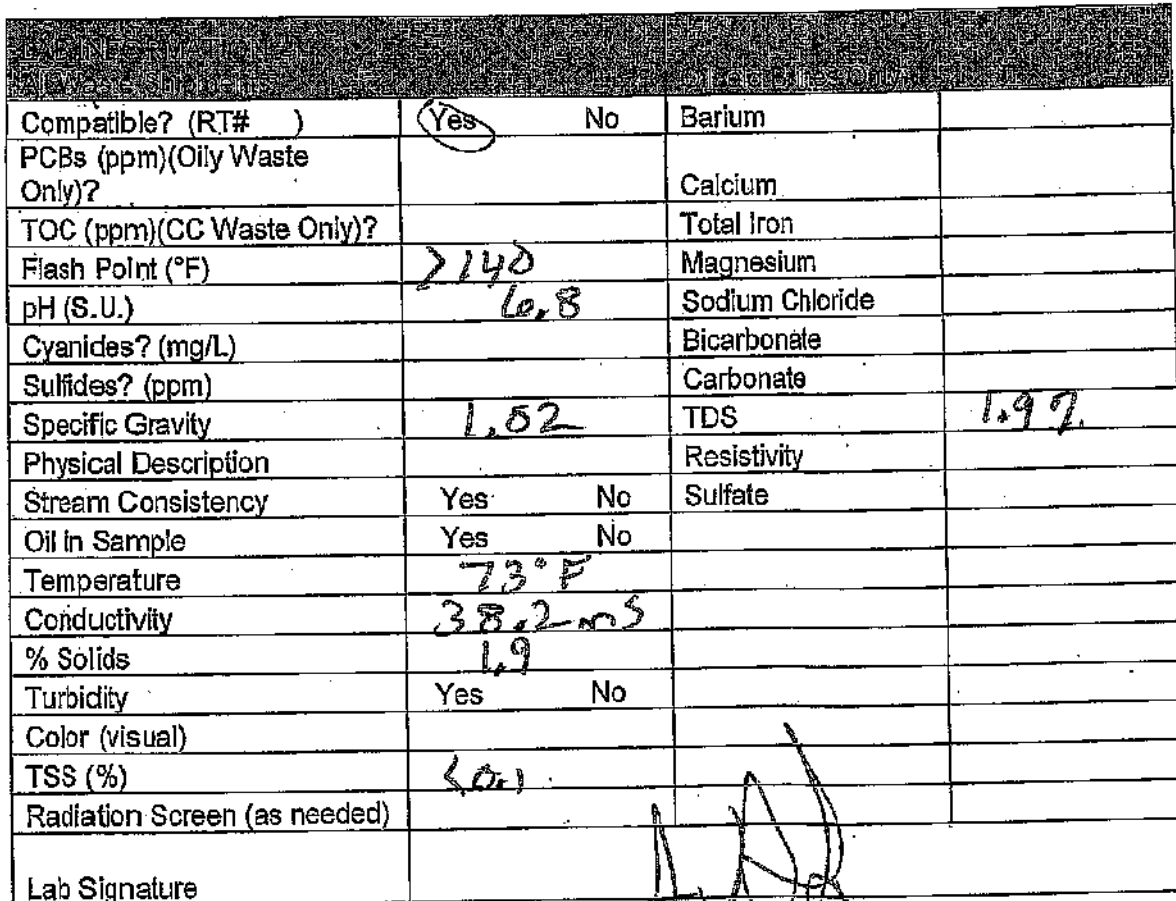 LAB INFORMATION
All Waste Shipments Only
Compatible? (RT# ) Yes No Barium
PCBs (ppm)(Oily Waste
Only)? Calcium
TOC (ppm)(CC Waste Only)? Total Iron
Flash Point (°F) >140 Magnesium
pH (S.U.) 6.8 Sodium Chloride
Cyanides? (mg/L) Bicarbonate
Sulfides? (ppm) Carbonate
Specific Gravity 1.02 TDS 1.9%
Physical Description Resistivity
Stream Consistency Yes No Sulfate
Oil in Sample Yes No
Temperature 73°F
Conductivity 38.2 mS
% Solids 1.9
Turbidity Yes No
Color (visual)
TSS (%) <0.1
Radiation Screen (as needed)
Lab Signature